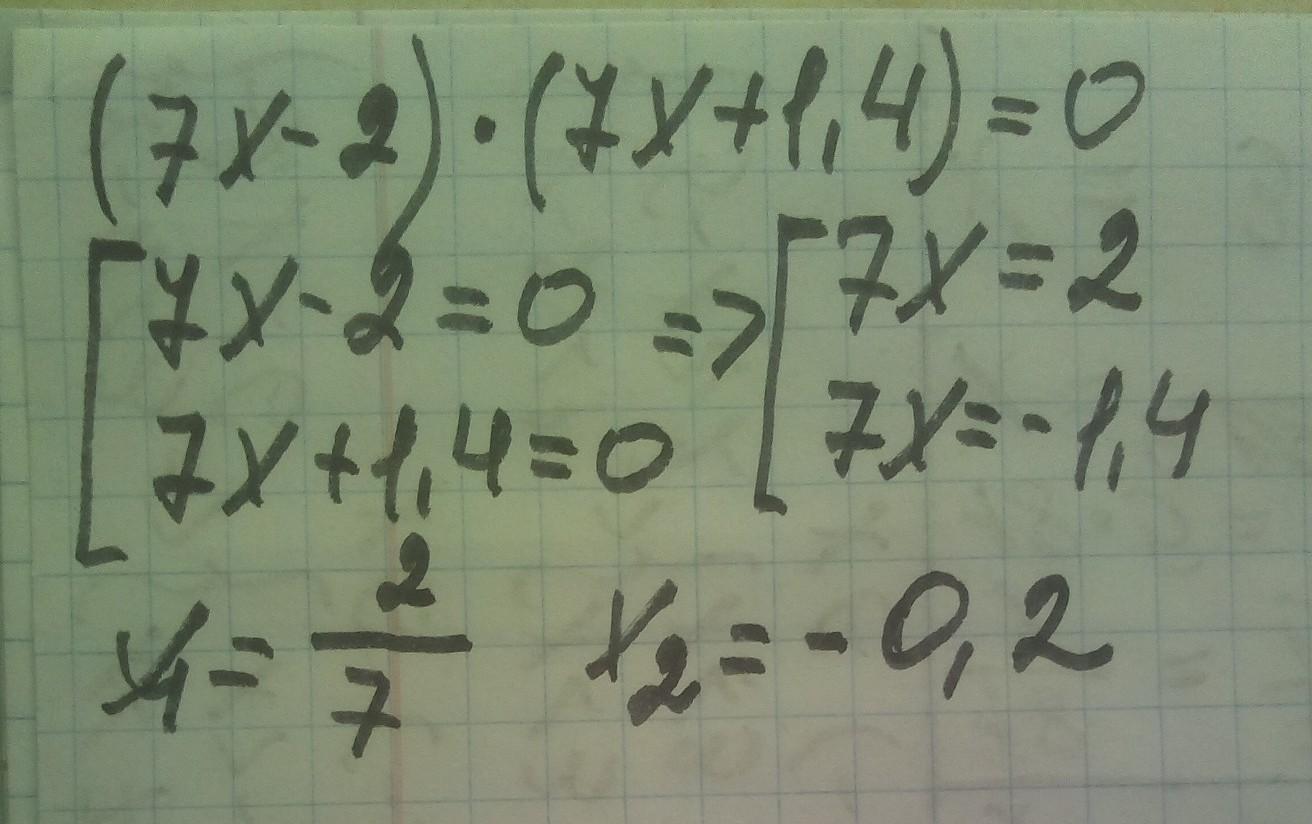 (7x-2)·(7x+1,4)=0
[7x-2=0 => [7x=2
7x+1,4=0 7x=-1,4
x₁=2/7 x₂=-0,2